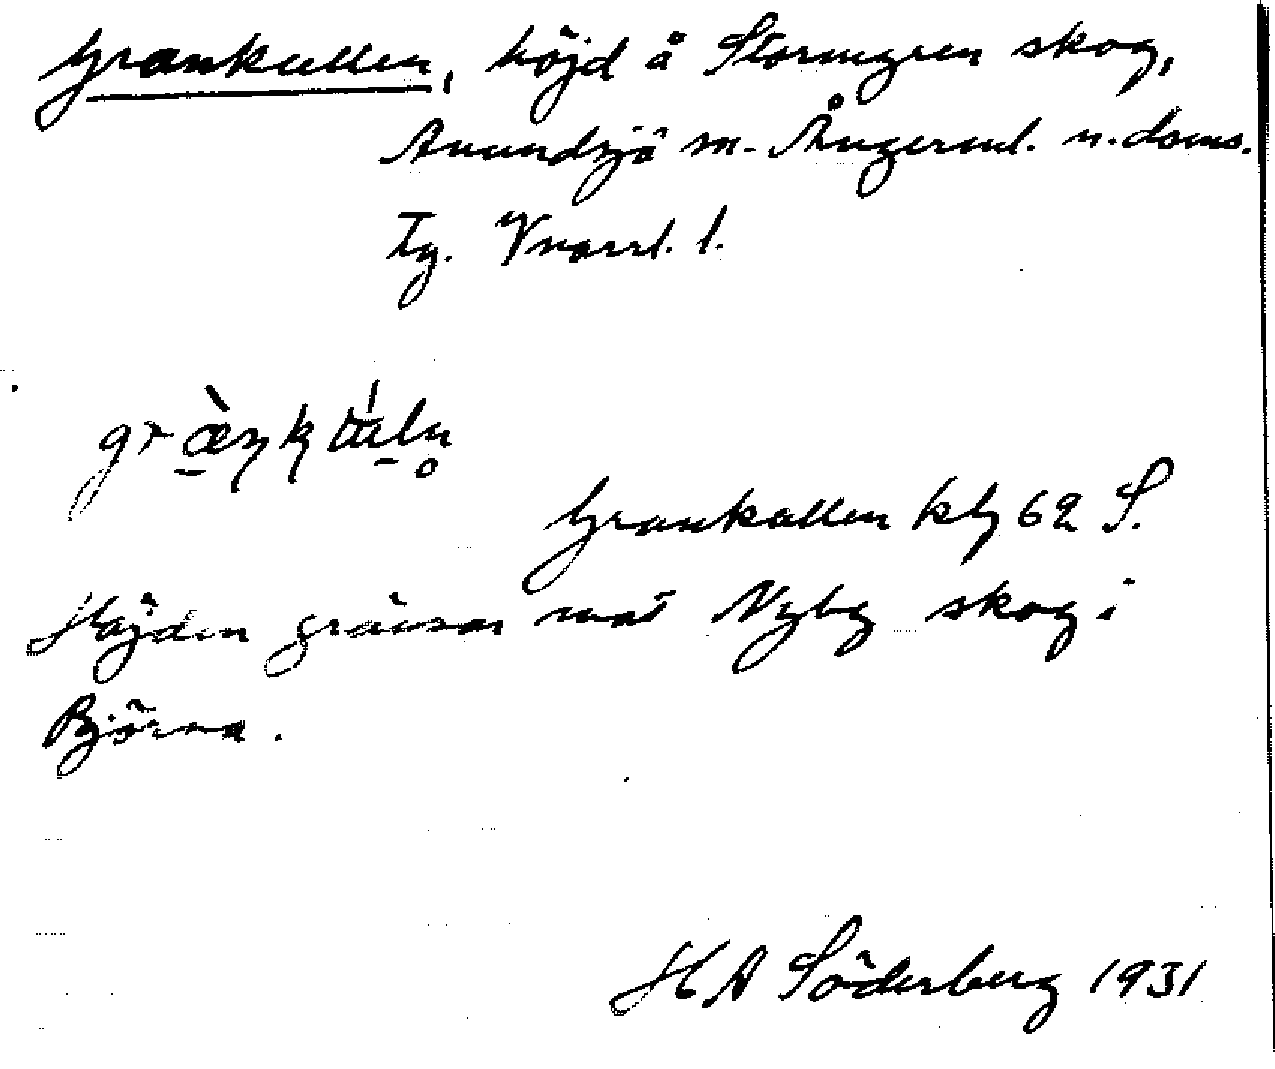 Grankullen, höjd å Stormyren skog,
Anundsjö sn. Ångerml. n. doms.
Tg. Vnorrl. l.
Grankullen kbl 62 S.
Höjden gränsar mot Nyby skog i
Björna.
H A Söderberg 1931